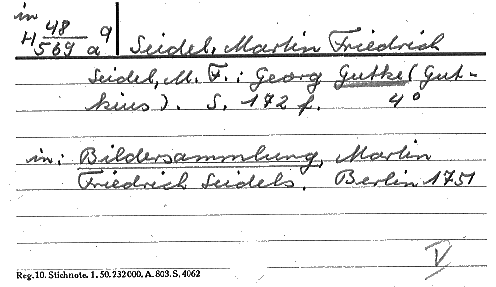 in
H 48/569 a q
Seidel, Martin Friedrich
Seidel, M. F.: Georg Gutke (Gut-
kius). S. 172 f. 4°
in: Bildersammlung, Martin
Friedrich Seidels. Berlin 1751
V
Reg. 10. Stichnote. 1. 50. 232 000. A. 803. S. 4062